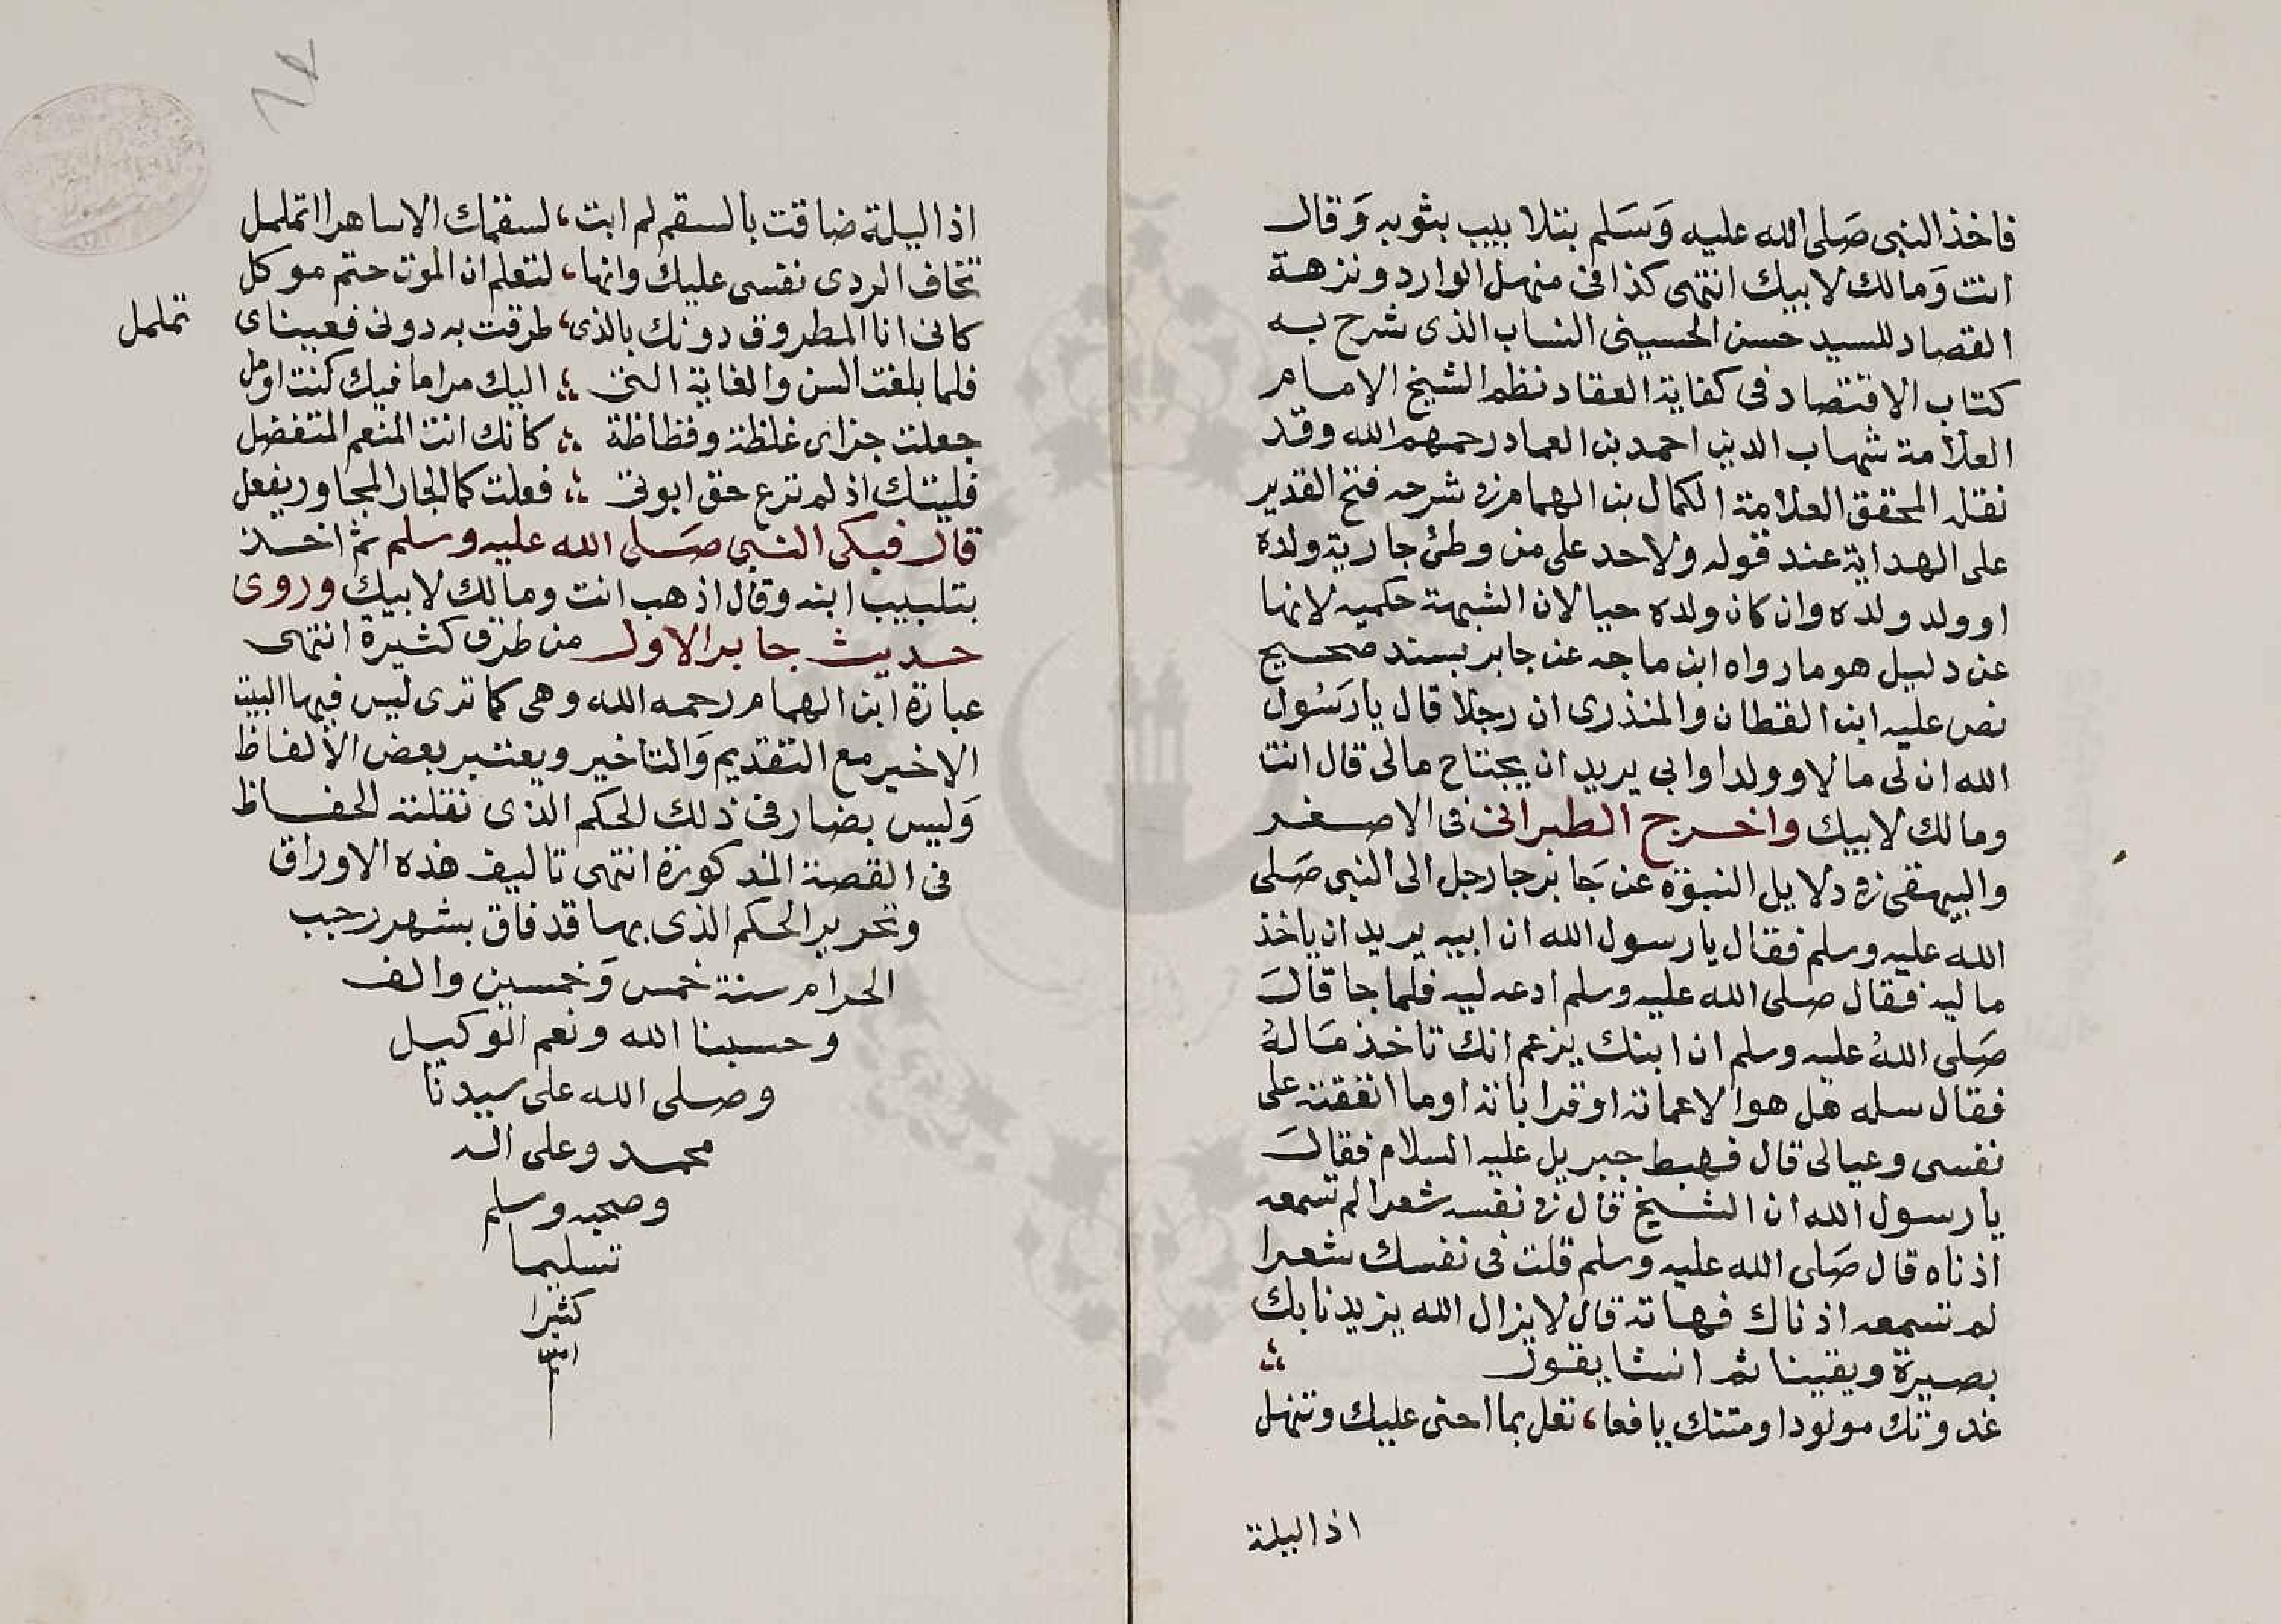 فاخذ النبى صَلى الله عليه وَسَلم بتلابيب بثوبه وَقال
انت وَمالك لابيك انتهى كذا فى منهل الوارد ونزهة
القصاد للسيد حسن الحسينى النساب الذى شرح به
كتاب الاقتصاد فى كفاية العقاد نظم الشيخ الامام
العلامة شهاب الدين احمد بن العماد رحمهم الله وقد
نقله المحقق العلامة الكمال بن الهمام فى شرحه فتح القدير
على الهداية عند قوله ولاحد على من وطئ جارية ولده
او ولد ولده وان كان ولده حيا لان الشبهة حكميه لانها
عن دليل هو مارواه ابن ماجه عن جابر بسند صحيح
نص عليه ابن القطان والمنذرى ان رجلا قال يارَسُول
الله ان لى مالا وولدا وابي يريد ان يجتاح مالى قال انت
ومالك لابيك واخرج الطبرانى فى الاصغر
والبيهقى فى دلايل النبوة عن جَابر جا رجل الى النبى صَلى
الله عليه وسلم فقال يارسول الله ان ابيه يريد ان ياخذ
ماليه فقال صلى الله عليه وسلم ادعه ليه فلما جا قالَ
صَلى اللهُ عليه وسلم ان ابنك يزعم انك تاخذ مَالهُ
فقال سله هل هو الا عماته او قراباته او ما انفقته على
نفسى وعيالى قال فهبط جبريل عليه السلام فقالَ
يارسول الله ان الشيخ قال فى نفسه شعرا لم تسمعه
اذناه قال صَلى الله عليه وسلم قلت فى نفسك شعرا
لم تسمعه اذناك فهاته قال لايزال الله يزيدنا بك
بصيرة ويقينا ثم انشا يقول
غدوتك مولودا ومنتك يافعا، تعل بما احنى عليك وتنهل
اذاليلة
اذاليلة ضاقت بالسقم لم ابت، لسقمك الا ساهرا اتململ
تخاف الردى نفسى عليك وانها، لتعلم ان الموت حتم موكل
كانى انا المطروق دونك بالذى، طرقت به دونى فعيناى
تململ
فلما بلغت السن والغاية التى اليك مراما فيك كنت اومل
جعلت جزاى غلظة وفظاظة كانك انت المنعم المتفضل
فليتك اذ لم ترع حق ابوتى فعلت كما الجار المجاور يفعل
قال فبكى النبى صَلى الله عليه وسلم ثم اخذ
بتلبيب ابنه وقال اذهب انت ومالك لابيك وروى
حديث جابر الاول من طرق كثيرة انتهى
عبارة ابن الهمام رحمه الله وهى كما ترى ليس فيها البيت
الاخير مع التقديم وَالتاخير ويعتبر بعض الالفاظ
وَليس بضار فى ذلك الحكم الذى نقلته الحفاظ
فى القصة المذكورة انتهى تاليف هذه الاوراق
وتحرير الحكم الذى بها قد فاق بشهر رجب
الحرام سنة خمس وَخمسين والف
وحسبنا الله ونعم الوكيل
وصلى الله على سيدنا
محمد وعلى اله
وصحبه وسلم
تسليما
كثيرا
امين